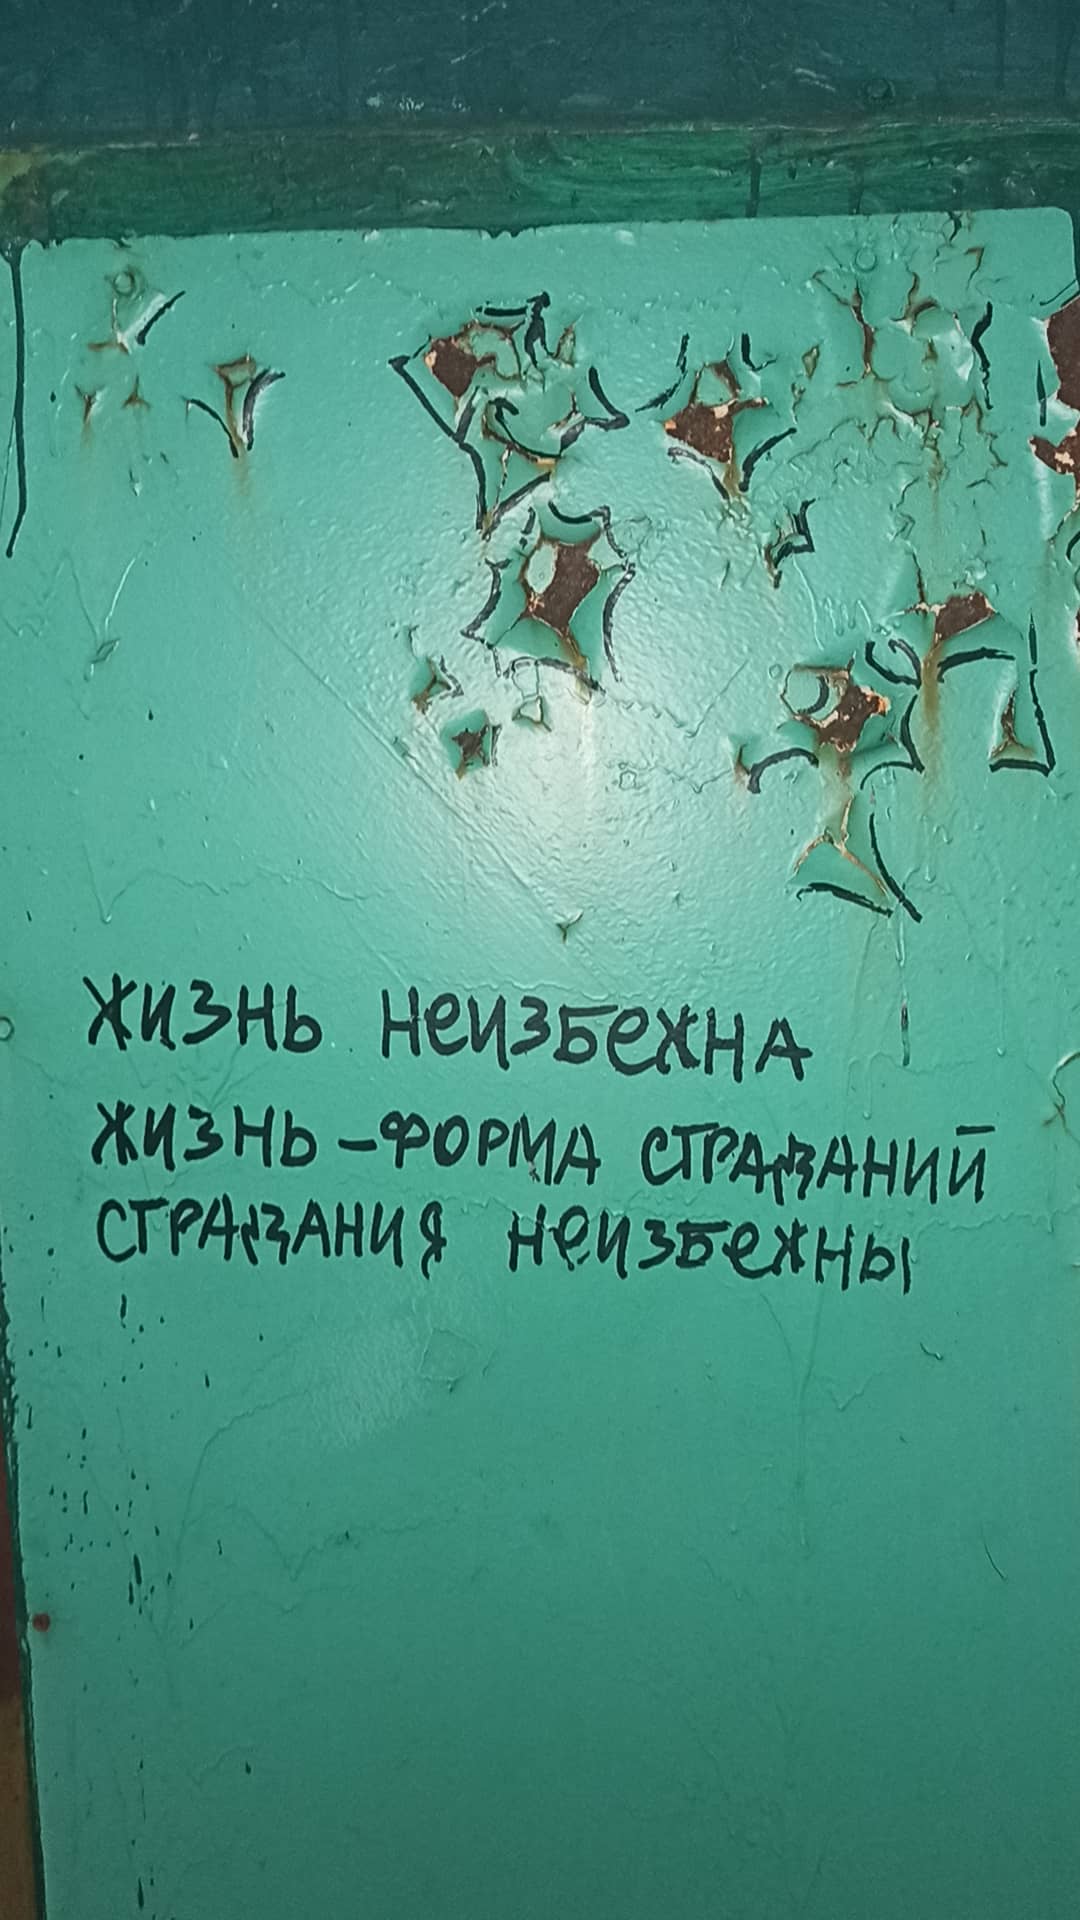 ЖИЗНЬ НЕИЗБЕЖНА
ЖИЗНЬ – ФОРМА СТРАДАНИЙ
СТРАДАНИЯ НЕИЗБЕЖНЫ